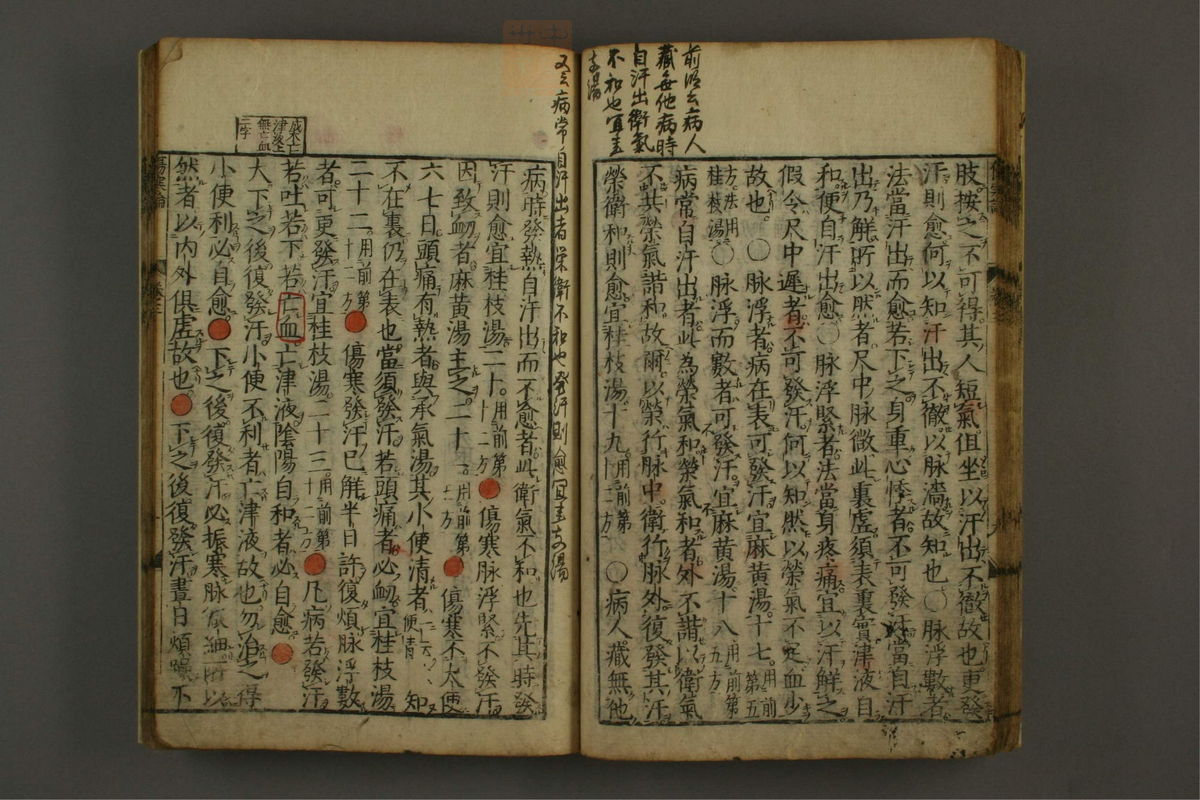 前　云病人
藏無他病時
自汗出衛氣
不和也宜圭
支湯
肢按之不可得其人短氣但坐以汗出不徹故也更發
汗則愈何以知汗出不徹以脉濇故知也〇脉浮數者
法當汗出而愈若下之身重心悸者不可發汗當自汗
出乃解所以然者尺中脉微此裏虛須表裏實津液自
和便自汗出愈〇脉浮緊者法當身疼痛宜以汗解之
假令尺中遲者不可發汗何以知然以榮氣不足血少
故也〇脉浮者病在表可發汗宜麻黃湯十七用前第五
方法用桂枝湯〇脉浮而數者可發汗宜麻黃湯十八用前第五方
病常自汗出者此為榮氣和榮氣和者外不諧以衛氣
不共榮氣諧和故爾以榮行脉中衛行脉外復發其汗
榮衛和則愈宜桂枝湯十九用前第十二方〇病人藏無他
又云病常自汗出者栄衛不和也発汗則愈宜圭支湯
病時發熱自汗出而不愈者此衛氣不和也先其時發
汗則愈宜桂枝湯二十用前第十二方 傷寒脉浮緊不發汗
因致衂者麻黃湯主之二十一用前第五方 傷寒不大便
六七日頭痛有熱者與承氣湯其小便清者一云大便青知
不在裏仍在表也當須發汗若頭痛者必衂宜桂枝湯
二十二用前第十二方 傷寒發汗已解半日許復煩脉浮數
者可更發汗宜桂枝湯二十三用前第十二方 凡病若發汗
若吐若下若亡血亡津液陰陽自和者必自愈
成本亡
津液上
無亡血
三字
大下之後復發汗小便不利者亡津液故也勿治之得
小便利必自愈 下之後復發汗必振寒脉微細所以
然者以内外俱虛故也 下之後復發汗晝日煩躁不
傷寒論 卷三